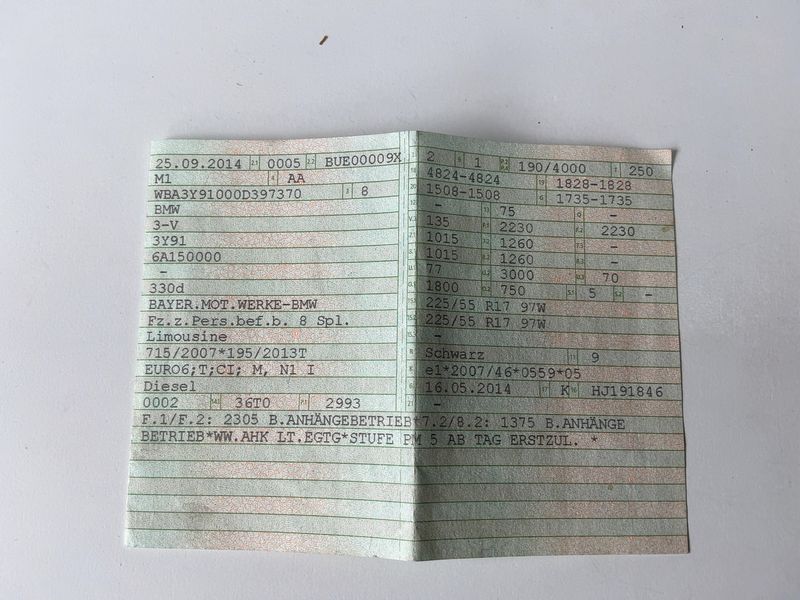 25.09.2014 2.1 0005 2.2 BUE00009X
M1 4 AA
WBA3Y91000D397370 3 8
BMW
3-V
3Y91
6A150000
-
330d
BAYER.MOT.WERKE-BMW
Fz.z.Pers.bef.b. 8 Spl.
Limousine
715/2007*195/2013T
EURO6;T;CI; M, N1 I
Diesel
0002 36TO 2993
2 1 190/4000 250
4824-4824 1828-1828
1508-1508 1735-1735
- 75 -
135 2230 2230
1015 1260 -
1015 1260 -
77 3000 70
1800 750 5 -
225/55 R17 97W
225/55 R17 97W
-
Schwarz 9
e1*2007/46*0559*05
16.05.2014 K HJ191846
-
F.1/F.2: 2305 B.ANHÄNGEBETRIEB*7.2/8.2: 1375 B.ANHÄNGE
BETRIEB*WW.AHK LT.EGTG*STUFE PM 5 AB TAG ERSTZUL. *